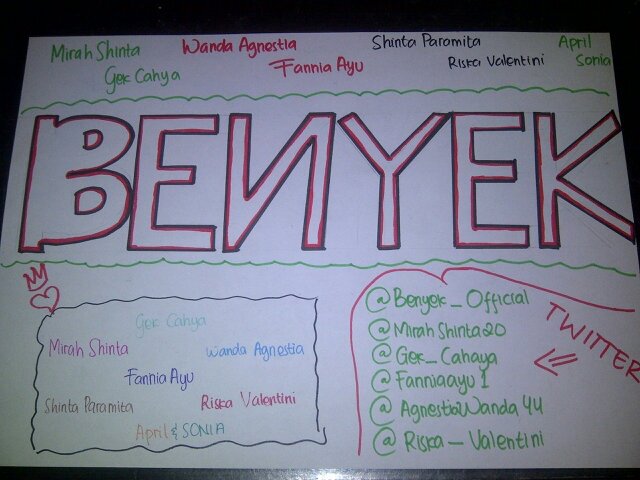 Mirah Shinta Wanda Agnestia Shinta Paramita April
Gek Cahya Fannia Ayu Riska Valentini Sonia
BENYEK
Gek Cahya
Mirah Shinta Wanda Agnestia
Fannia Ayu
Shinta Paramita Riska Valentini
April & SONIA
@Benyek_Official
@MirahShinta20
@Gek_Cahaya
@Fanniaayu1
@AgnestiaWanda44
@Riska_Valentini
TWITTER